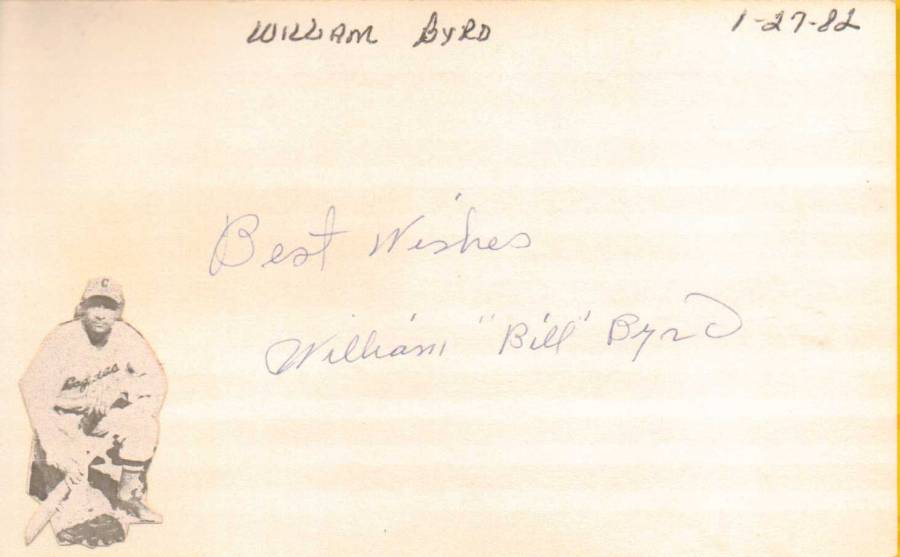 WILLIAM BYRD 1-27-82
Best Wishes
William "Bill" Byrd
C